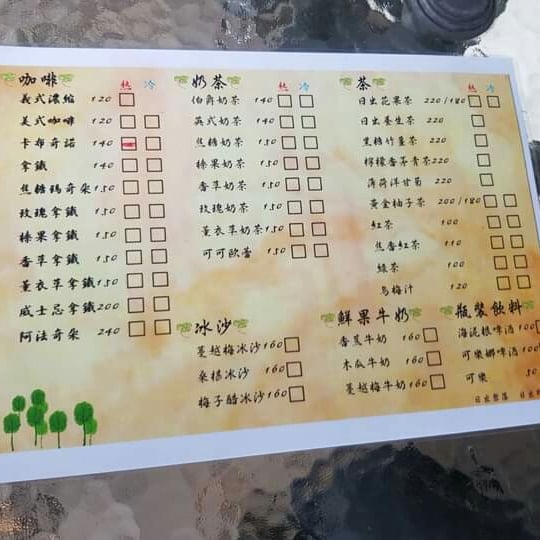 咖啡
熱 冷
義式濃縮 120
美式咖啡 120
卡布奇諾 140
拿鐵 140
焦糖瑪奇朵 150
玫瑰拿鐵 150
榛果拿鐵 150
香草拿鐵 150
薰衣草拿鐵 150
威士忌拿鐵 200
阿法奇朵 240
奶茶
熱 冷
伯爵奶茶 140
英式奶茶 140
焦糖奶茶 150
榛果奶茶 150
香草奶茶 150
玫瑰奶茶 150
薰衣草奶茶 150
可可歐蕾 150
茶
熱 冷
日出花果茶 220/180
日出養生茶 220
黑糖竹薑茶 220
檸檬香茅青茶 220
薄荷洋甘菊 220
黃金柚子茶 200/180
紅茶 100
焦香紅茶 110
綠茶 100
烏梅汁 120
冰沙
蔓越梅冰沙 160
桑椹冰沙 160
梅子醋冰沙 160
鮮果牛奶
香蕉牛奶 160
木瓜牛奶 160
蔓越梅牛奶 160
瓶裝飲料
海泥根啤酒 100
可樂娜啤酒 100
可樂 50